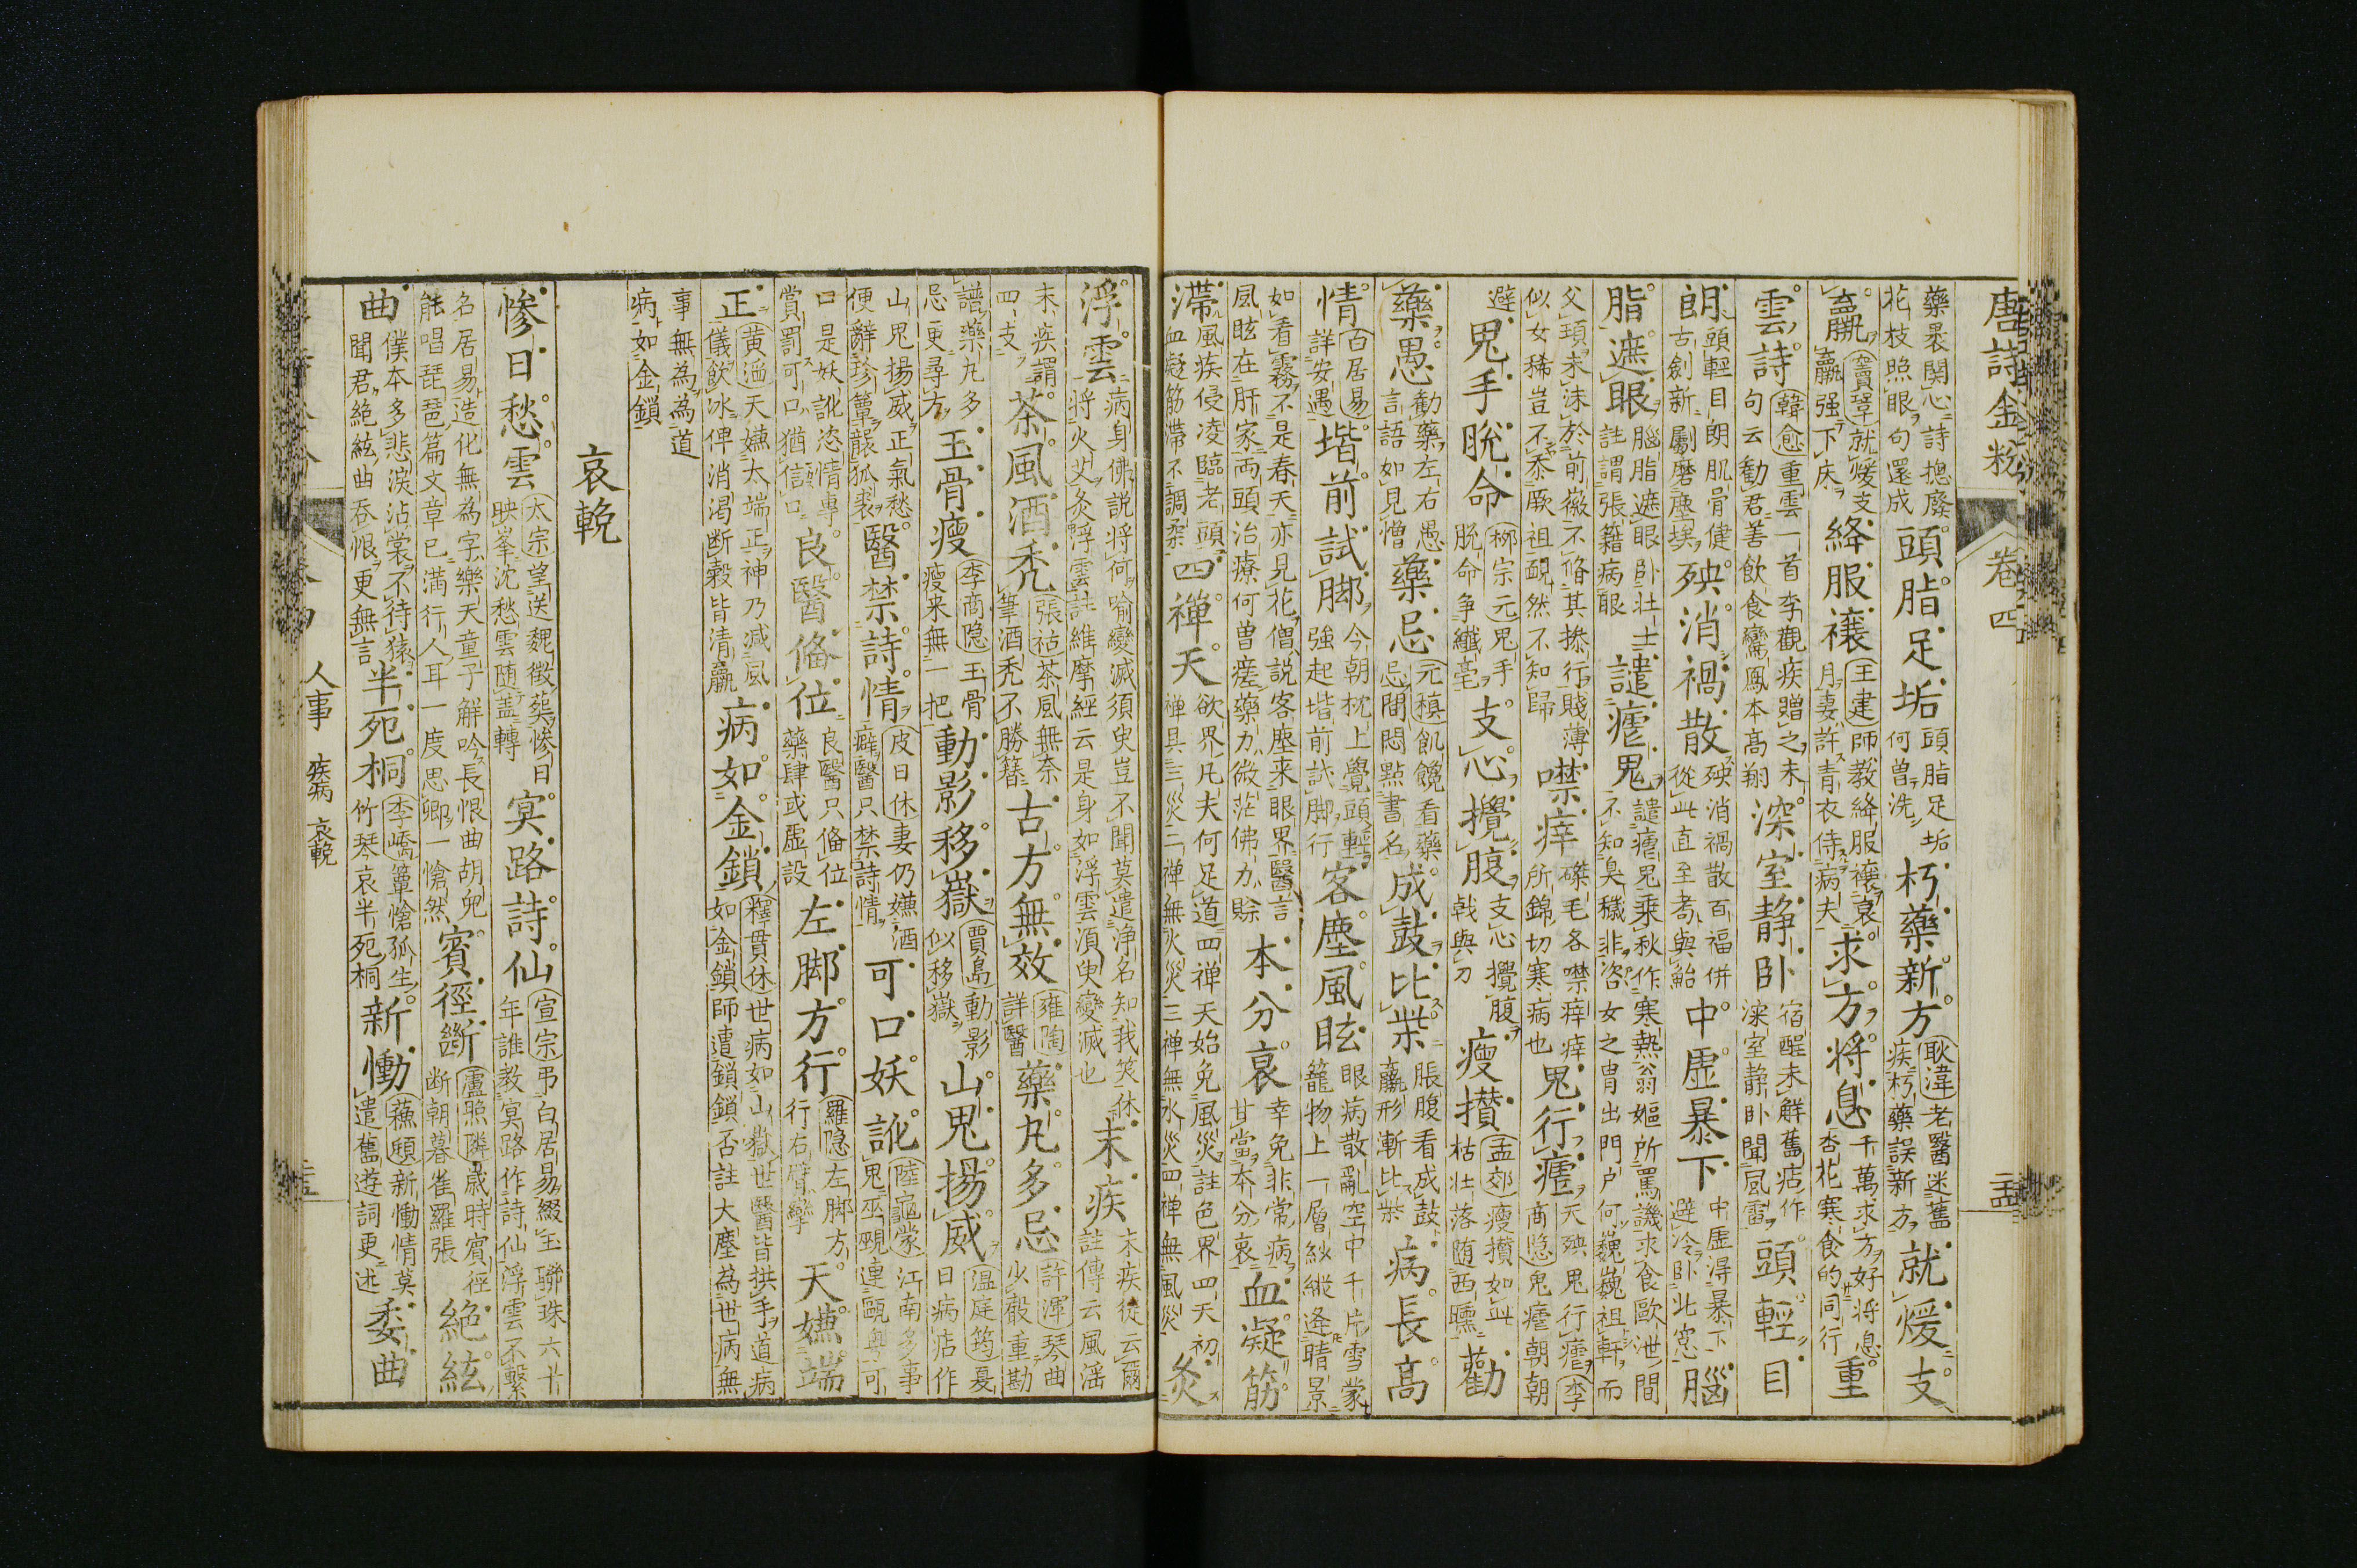 唐詩金粉　卷四
藥裹関心詩摠廢
花枝照眼句還成
頭脂足垢
頭脂足垢
何曾洗
朽藥新方
耿湋老醫迷舊
疾朽藥誤新方
就煖支
羸
竇鞏就煖支
羸强下床
絳服禳
王建師教絳服禳衰
月妻許青衣侍病夫
求方將息
千萬求方好將息
杏花寒食的同行
重
雲詩
韓愈重雲一首李觀疾贈之末
句云勸君善飲食鸞鳳本高翔
深室静卧
宿酲未解舊痁作
深室静卧聞風雷
頭輕目
朗
頭輕目朗肌骨健
古創新劚磨塵埃
殃消禍散
殃消禍散百福併
從此直至耇與鮐
中虚暴下
中虚得暴下
避冷卧北窓
腦
脂遮眼
腦脂遮眼卧壮士
註謂張籍病眼
譴瘧鬼
譴瘧鬼乘秋作寒熱翁嫗所罵譏求食歐泄間
不知臭穢非咨女之胄出門戸何巍巍祖軒而
父頊未沫於前徽不脩其操行賤薄
似女稀豈不忝厥祖靦然不知歸
噤痒
磔毛各噤痒痒
所錦切寒病也
鬼行瘧
天殃鬼行瘧李
商隐鬼瘧朝朝
避
鬼手脫命
柳宗元鬼手
脫命争纎毫
支心攪腹
支心攪腹
戟與刀
瘦攅
孟郊瘦攅如此
枯壮落随西曛
勸
藥愚
勸藥左右愚
言語如見憎
藥忌
元稹飢饞看藥
忌閒悶點書名
成鼓比柴
脹腹看成鼓
羸形漸比柴
病長髙
情
百居易
詳安遇
堦前試脚
今朝枕上覺頭輕
強起堦前試脚行
客塵風眩
眼病散亂空中千片雪蒙
籠物上一層紗縱逢晴景
如看霧不是春天亦見花僧説客塵来眼界醫言
風眩在肝家两頭治療何曽瘥藥力微茫佛力賒
本分哀
幸免非常病
甘當本分哀
血凝筋
滯
風疾侵凌臨老頭
血凝筋滯不調柔
四禪天
欲界凡夫何足道四禅天始免風災註色界四天初
禅具三災二禅無火災三禅無水災四禅無風災
炙
浮雲
病身佛説將何喻變滅須臾豈不聞莫遣浄名知我笑休
將火艾灸浮雲註維摩經云是身如浮雲湏臾變滅也
末疾
末疾從云爾
註傳云風淫
末疾謂
四支
茶風酒禿
張祜茶風無奈
筆酒禿不勝簮
古方無效
雍陶
詳醫
藥丸多忌
許渾琴曲
少穀重勘
譜藥丸多
忌更尋方
玉骨瘦
李商隐玉骨
瘦来無一把
動影移嶽
賈島動影
似移嶽
山鬼揚威
温庭筠夏
日病痁作
山鬼揚威正氣愁
便辭珍簟襲狐裘
醫禁詩情
皮日休妻仍嫌酒
癖醫只禁詩情
可口妖訛
陸龜蒙江南多事
鬼巫覡連甌粤可
口是妖訛恣情專
賞罰可口猶信口
良醫俻位
良醫只俻位
藥肆或虚設
左脚方行
羅隐左脚方
行右臂攣
天嫌端
正
黄滔天嫌太端正神乃减風
儀飲冰俾消渴断穀皆清羸
病如金鎖
釋貫休世病如山嶽世醫皆拱手道病
如金鎖師遣鎖鎖否註大塵為世病無
事無為為道
病如金鎖
哀輓
惨日愁雲
太宗望送魏徵葬惨日
映峯沈愁雲随盖轉
冥路詩仙
宣宗弔白居易綴玉聯珠六十
年誰教冥路作詩仙浮雲不繋
名居易造化無為字樂天童子解吟長恨曲胡兒
能唱琵琶篇文章已満行人耳一度思卿一愴然
賓徑斷
盧照隣歳時賓徑
断朝暮雀羅張
絶絃
曲
僕本多悲淚沾裳不待猿
聞君絶絃曲吞恨更無言
半死桐
李嶠簟愴孤生
竹琴哀半死桐
新慟
蘓頲新慟情莫
遣舊遊詞更述
委曲
人事　疾病　哀輓